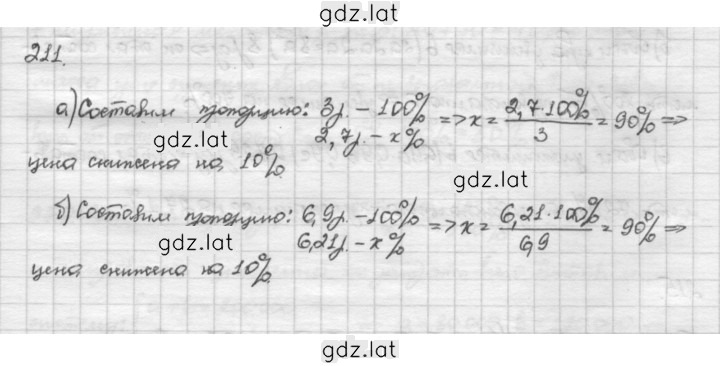 gdz.lat
211.
а) Составим пропорцию: 3р. – 100%
2,7р. – x% => x = 2,7·100% / 3 = 90% =>
gdz.lat
цена снижена на 10%.
gdz.lat
б) Составим пропорцию: 6,9р. – 100%
6,21р. – x% => x = 6,21·100% / 6,9 = 90% =>
gdz.lat
цена снижена на 10%.
gdz.lat